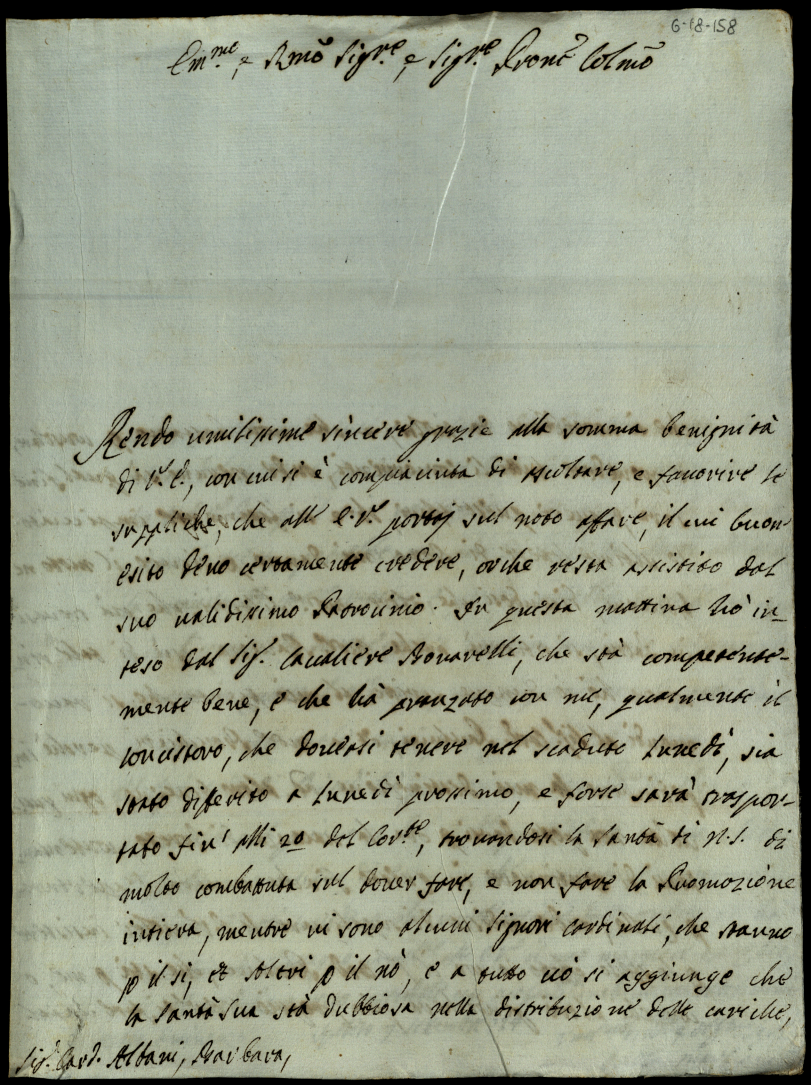 6-18-158
Em.mo, e Rmõ Sig.re, e Sig.re Pronẽ Colmõ
Rendo umilissime sincere grazie alla somma benignità
di V.E., con cui si è compiaciuta di ascoltare, e favorire le
suppliche, che all' E.V. portaj sul noto affare, il cui buon
esito devo certamente credere, orche resta assistito dal
suo validissimo Patrocinio. In questa mattina hò in-
teso dal Sig. Cavaliere Bonarelli, che stà competente-
mente bene, e che hà pranzato con me, qualmente il
Concistoro, che dovevasi tenere nel scaduto Lunedì, sia
stato differito a Lunedì prossimo, e forse sarà traspor-
tato fin' alli 20 del Cor.te, trovandosi la Santà di N.S. di
molto combattuta sul dover fare, e non fare la Promozione
intiera, mentre vi sono alcuni Signori Cardinali, che stanno
p il si, et Altri p il nò, e a tutto ciò si aggiunge che
la Santà Sua stà dubbiosa nella distribuzione delle cariche,
Sig.r Card. Albani, Barbara,